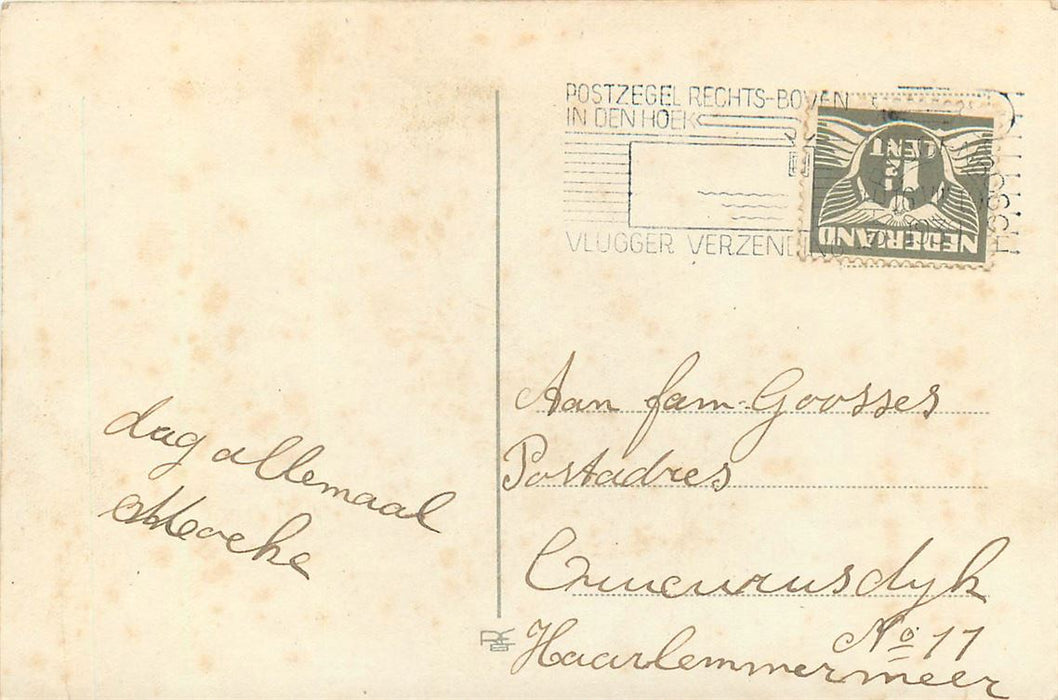 POSTZEGEL RECHTS-BOVEN
IN DEN HOEK
VLUGGER VERZEND
1
CENT
NEDERLAND
dag allemaal
Moeke
Aan fam. Goosses
Postadres
Cruquiusdyk
No 11
Haarlemmermeer